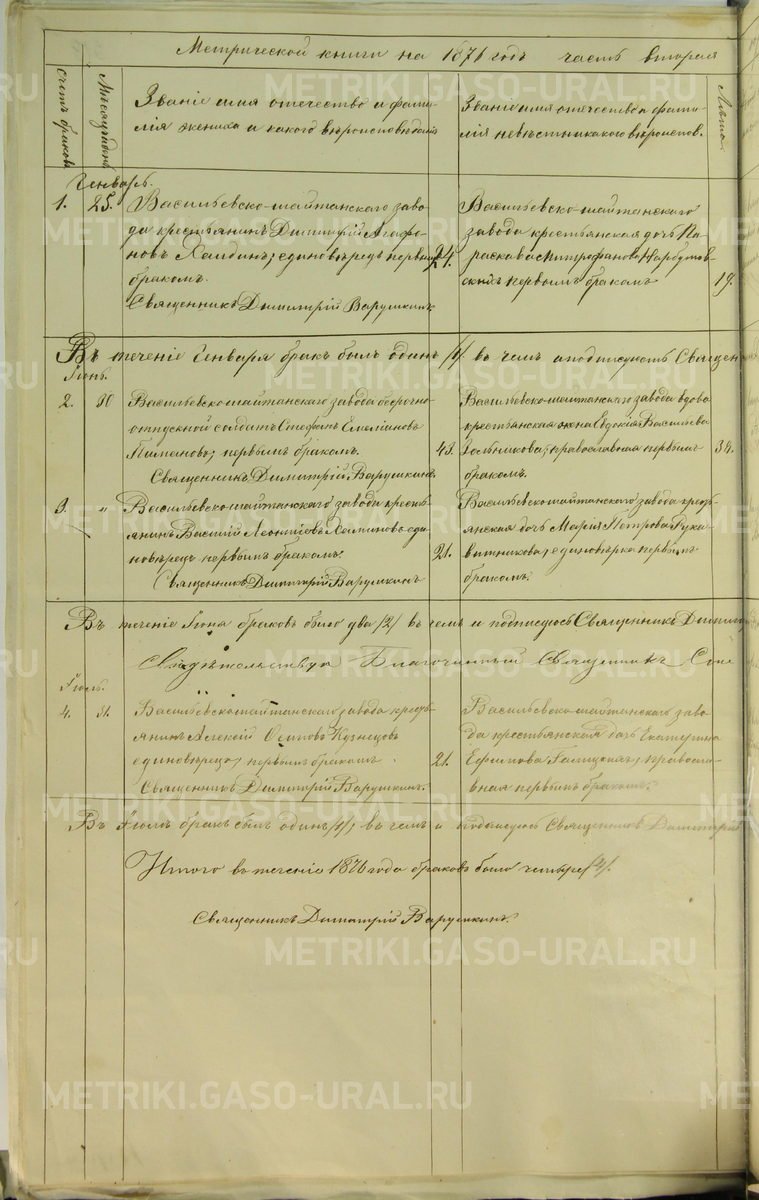 Метрической книги на 1876 годъ часть вторая
Счетъ браковъ
Мѣсяцъ и день
Званіе имя отечество и фами-
лія жениха и какого вѣроисповѣданія
Званіе имя отечество и фами-
лія невѣсты и какого вѣроиспов.
Лѣта
Генварь.
1. 25. Васильевско-шайтанскаго заво-
да крестьянинъ Димитрій Агафо-
новъ единовѣрецъ первымъ
бракомъ.
24.
Священникъ Димитрій Варушкинъ
Васильевско-шайтанскаго
завода крестьянская дочь Па-
раскева Митрофанова
первымъ бракомъ
19.
Въ теченіе Генваря бракъ былъ одинъ /1/ въ чемъ и подписуюсь Священ
Іюнь.
2. Васильевско-шайтанскаго завода безсрочно-
отпускной солдатъ Стефанъ Емельяновъ
Пименовъ; первымъ бракомъ.
43.
Священникъ Димитрій Варушкинъ.
Васильевско-шайтанскаго завода вдова
крестьянская жена Евдокія Васильева
православная первымъ
бракомъ.
34.
3. " Васильевскошайтанскаго завода кресть-
янинъ Василій Леонтіевъ еди-
новѣрецъ первымъ бракомъ.
21.
Священникъ Димитрій Варушкинъ
Васильевскошайтанскаго завода кресть-
янская дочь Марія Петрова Рука-
вишникова; единовѣрка первымъ
бракомъ.
Въ теченіе Іюня браковъ было два /2/ въ чемъ и подписуюсь Священникъ Димитрій
Свидѣтельствую Благочинный Священникъ
Іюль.
4. 31. Васильевскошайтанскаго завода кресть-
янинъ Алексій Осиповъ Кузнецовъ
единовѣрецъ, первымъ бракомъ.
21.
Священникъ Димитрій Варушкинъ.
Васильевско-шайтанскаго заво-
да крестьянская дочь Екатерина
Ефимова Галицкая, православ-
ная первымъ бракомъ.
Въ Іюлѣ бракъ былъ одинъ /1/, въ чемъ и подписуюсь Священникъ Димитрій
Итого въ теченіе 1876 года браковъ было четыре /4/.
Священникъ Димитрій Варушкинъ.
METRIKI.GASO-URAL.RU